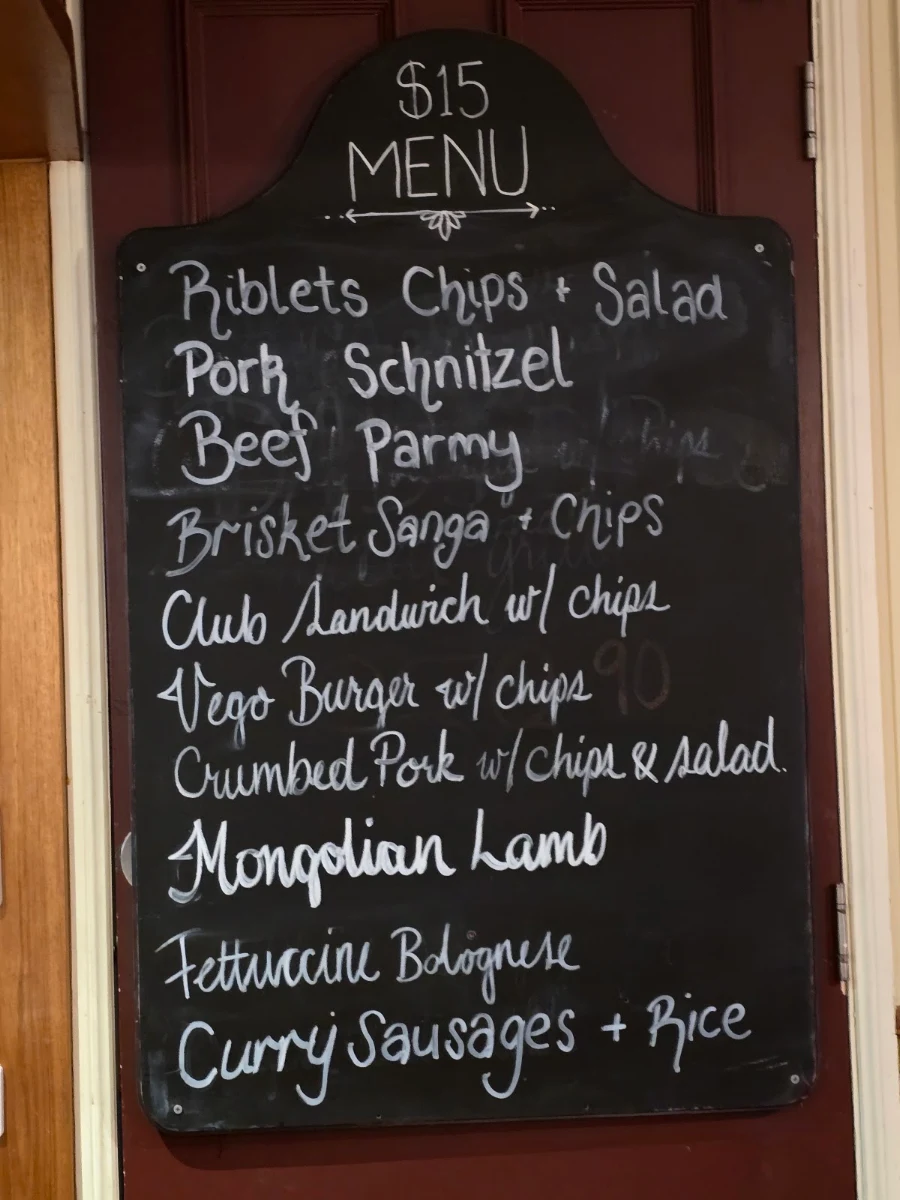 $15
MENU
Riblets Chips + Salad
Pork Schnitzel
Beef Parmy
Brisket Sanga + Chips
Club Sandwich w/ chips
Vego Burger w/ chips
Crumbed Pork w/ chips & salad.
Mongolian Lamb
Fettuccine Bolognese
Curry Sausages + Rice